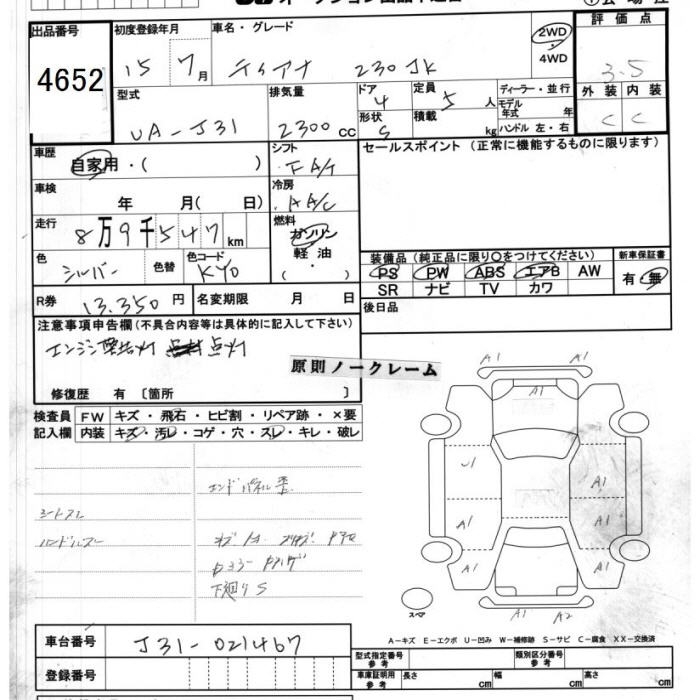 出品番号
4652
初度登録年月
15 7月
車名・グレード
ティアナ 230JK
2WD
・
4WD
評価点
3.5
外装 内装
C C
型式
UA-J31
排気量
2300cc
ドア
4
形状
S
定員
5人
積載
kg
ディーラー・並行
モデル年式 年
ハンドル 左・右
車歴
自家用・( )
シフト
FA/T
セールスポイント（正常に機能するものに限ります）
車検
年 月(日)
冷房
AA/C
走行
8万9千547km
燃料
ガソリン
軽油
( ・ )
色
シルバー
色替
色コード
KY0
装備品（純正品に限り○をつけてください）
新車保証書
PS PW ABS エアB AW
有・無
SR ナビ TV カワ
R券
13,350円
名変期限 月 日
後日品
注意事項申告欄(不具合内容等は具体的に記入して下さい)
エンジン警告灯 点灯
原則ノークレーム
修復歴 有〔箇所 〕
検査員
記入欄
FW キズ・飛石・ヒビ割・リペア跡・×要
内装 キズ・汚レ・コゲ・穴・スレ・キレ・破レ
エンドパネル歪
シートスレ
ハンドルスレ
下廻りS
A1 A1
A1
U1 A1
A1 A1
A1 A1
A1
A1 A2
スペア
A－キズ E－エクボ U－凹み W－補修跡 S－サビ C－腐食 XX－交換済
車台番号
J31-021467
登録番号
型式指定番号
参考
類別区分番号
参考
車庫証明用
参考
長さ cm
幅 cm
高さ cm